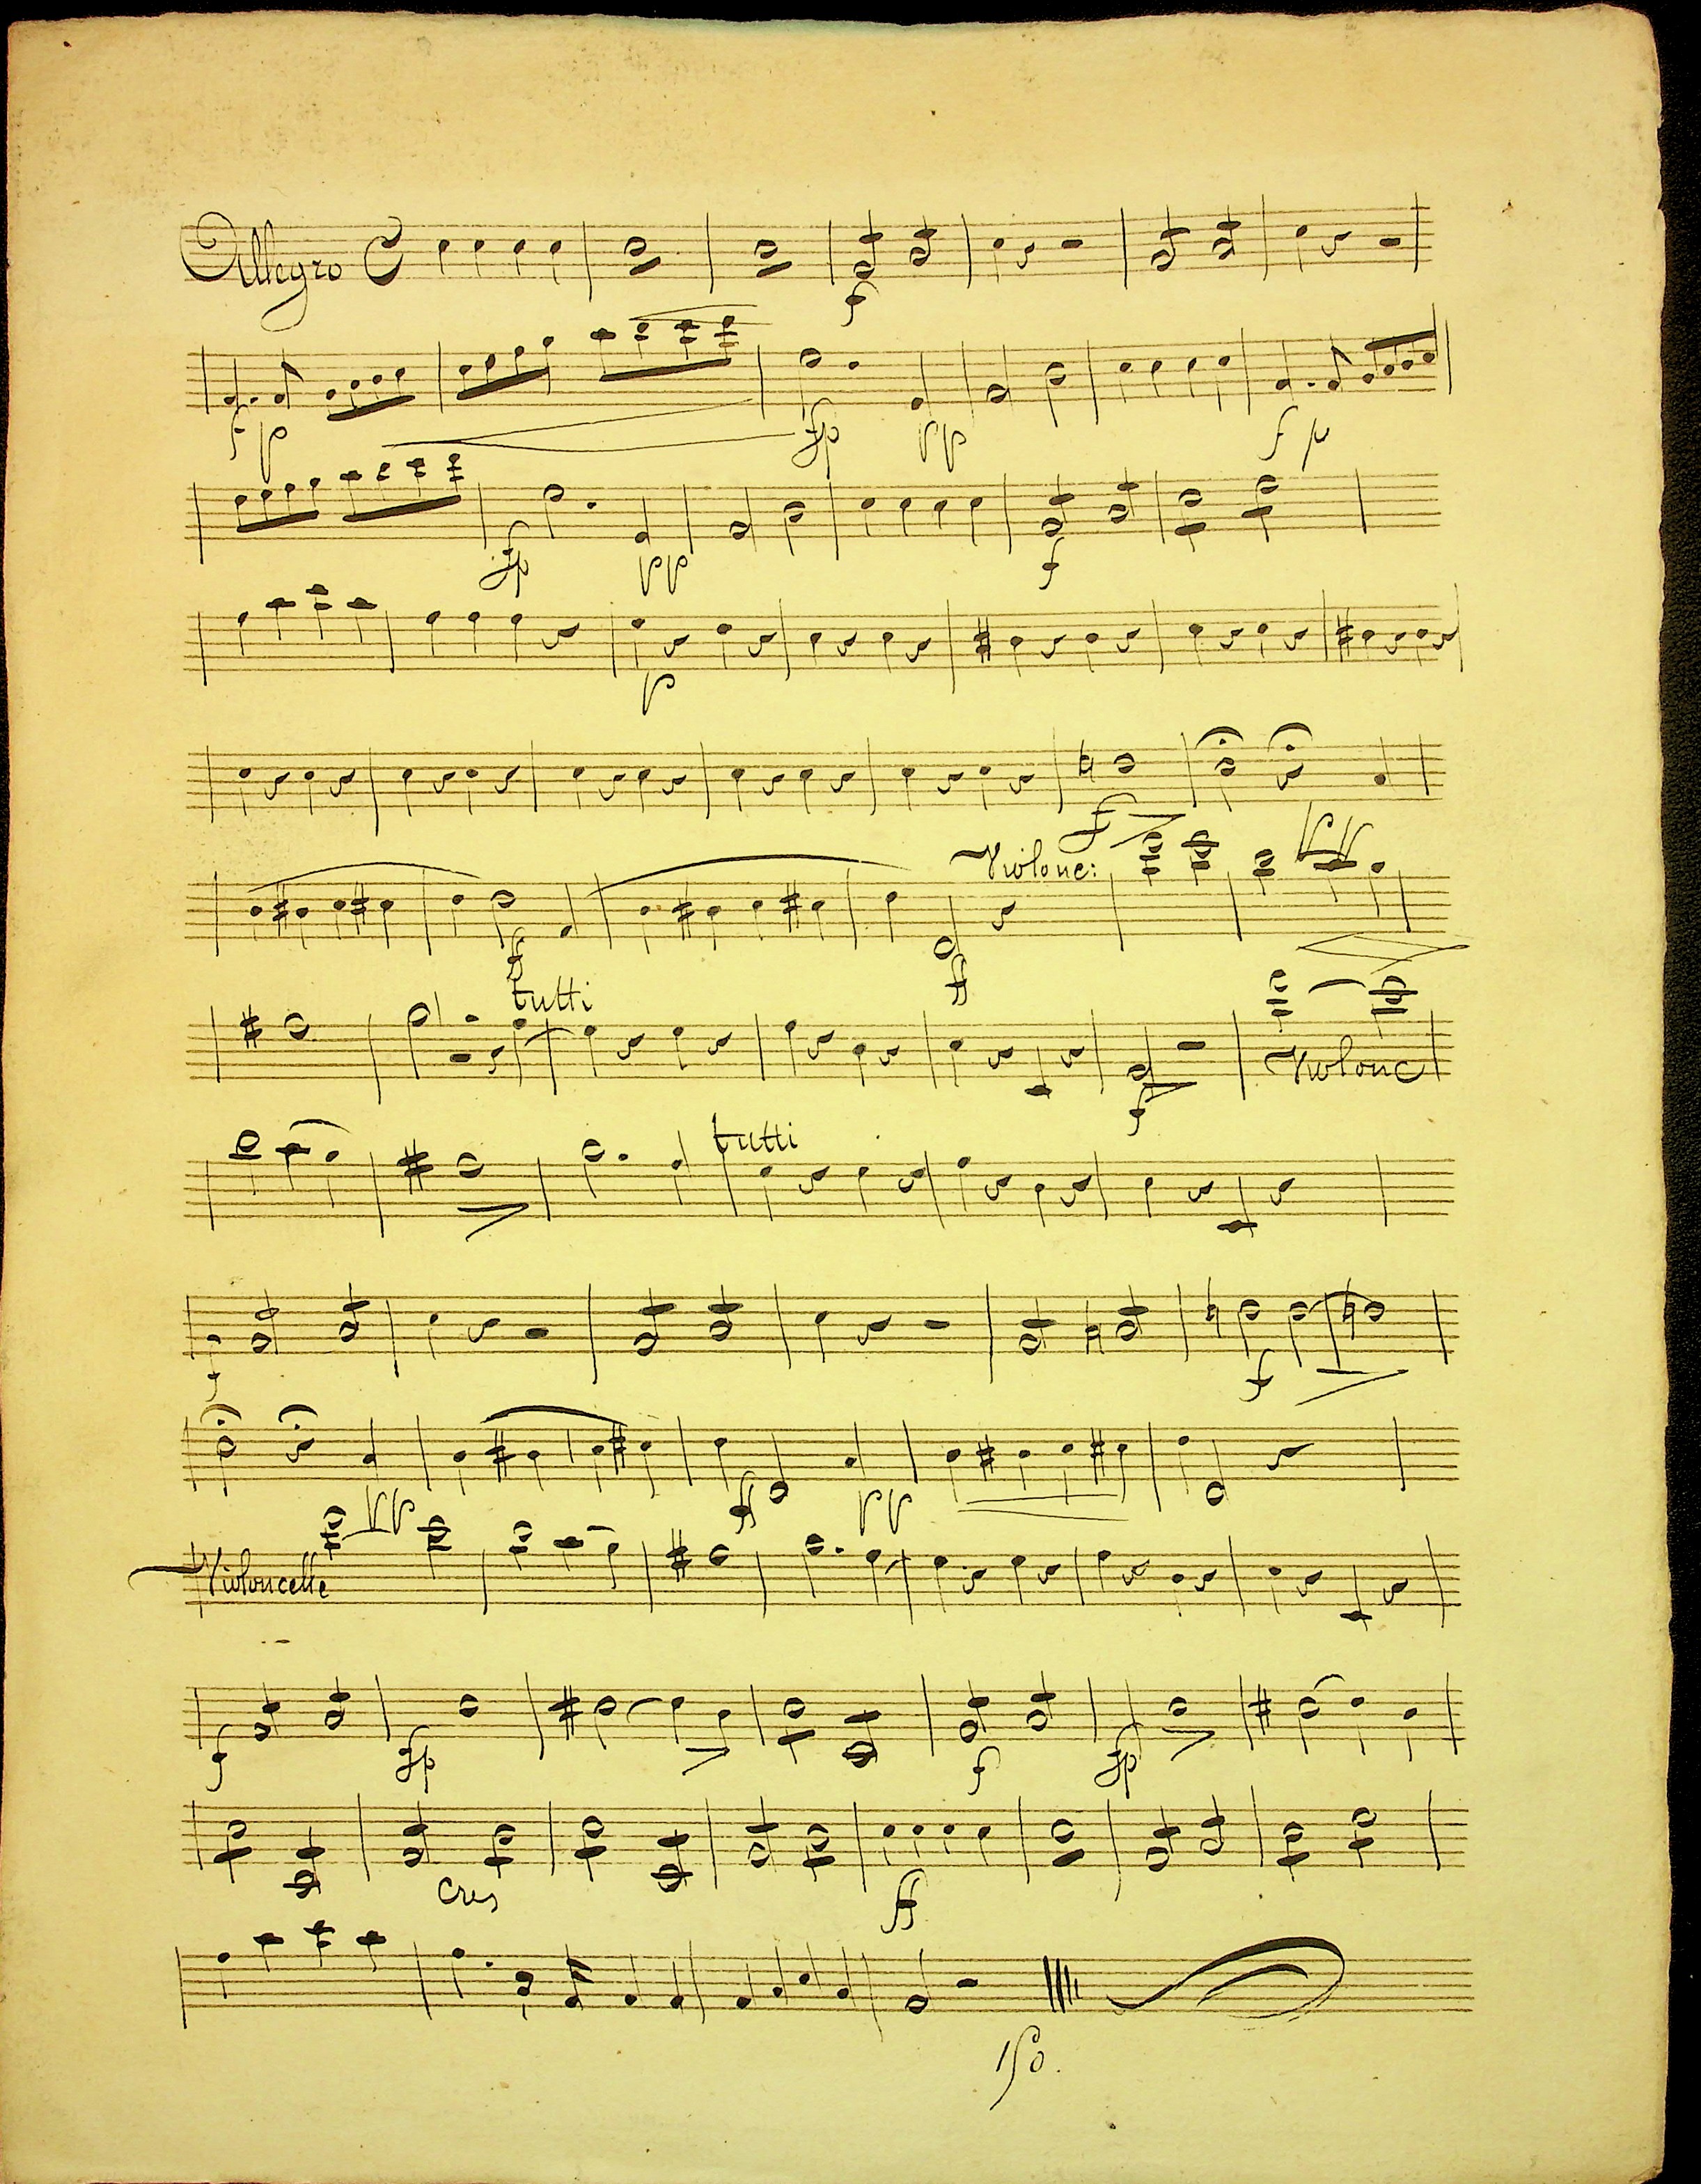 Allegro C
f
f p fp pp f p
fp pp f
p
f
Violonc: pp
f ff
tutti
f Violonc
tutti
f f
pp ff pp
Violoncelle
f fp f fp
cres ff